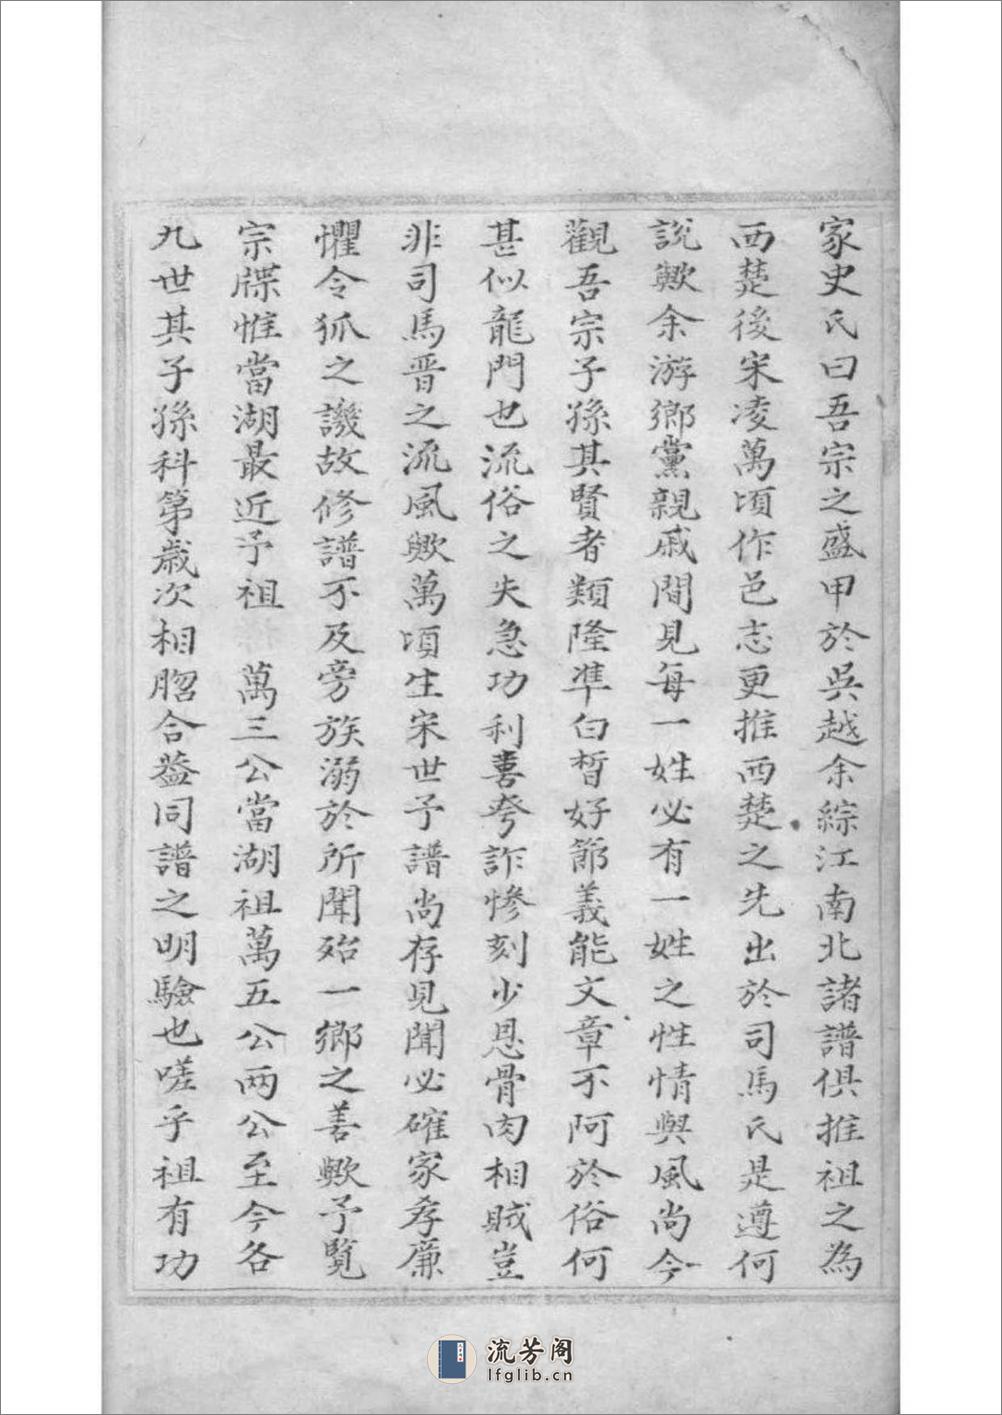 家史氏曰吾宗之盛甲於吳越余綜江南北諸譜俱推祖之為
西楚後宋凌萬頃作邑志更推西楚之先出於司馬氏是遵何
說歟余游鄉黨親戚間見每一姓必有一姓之性情與風尚今
觀吾宗子孫其賢者類隆準白晳好節義能文章不阿於俗何
甚似龍門也流俗之失急功利喜夸詐慘刻少恩骨肉相賊豈
非司馬晋之流風歟萬頃生宋世予譜尚存見聞必確家孝廉
懼令狐之譏故修譜不及旁族溺於所聞殆一鄉之善歟予覧
宗牒惟當湖最近予祖 萬三公當湖祖萬五公兩公至今各
九世其子孫科第歲次相脗合葢同譜之明驗也嗟乎祖有功
流芳阁
lfglib.cn